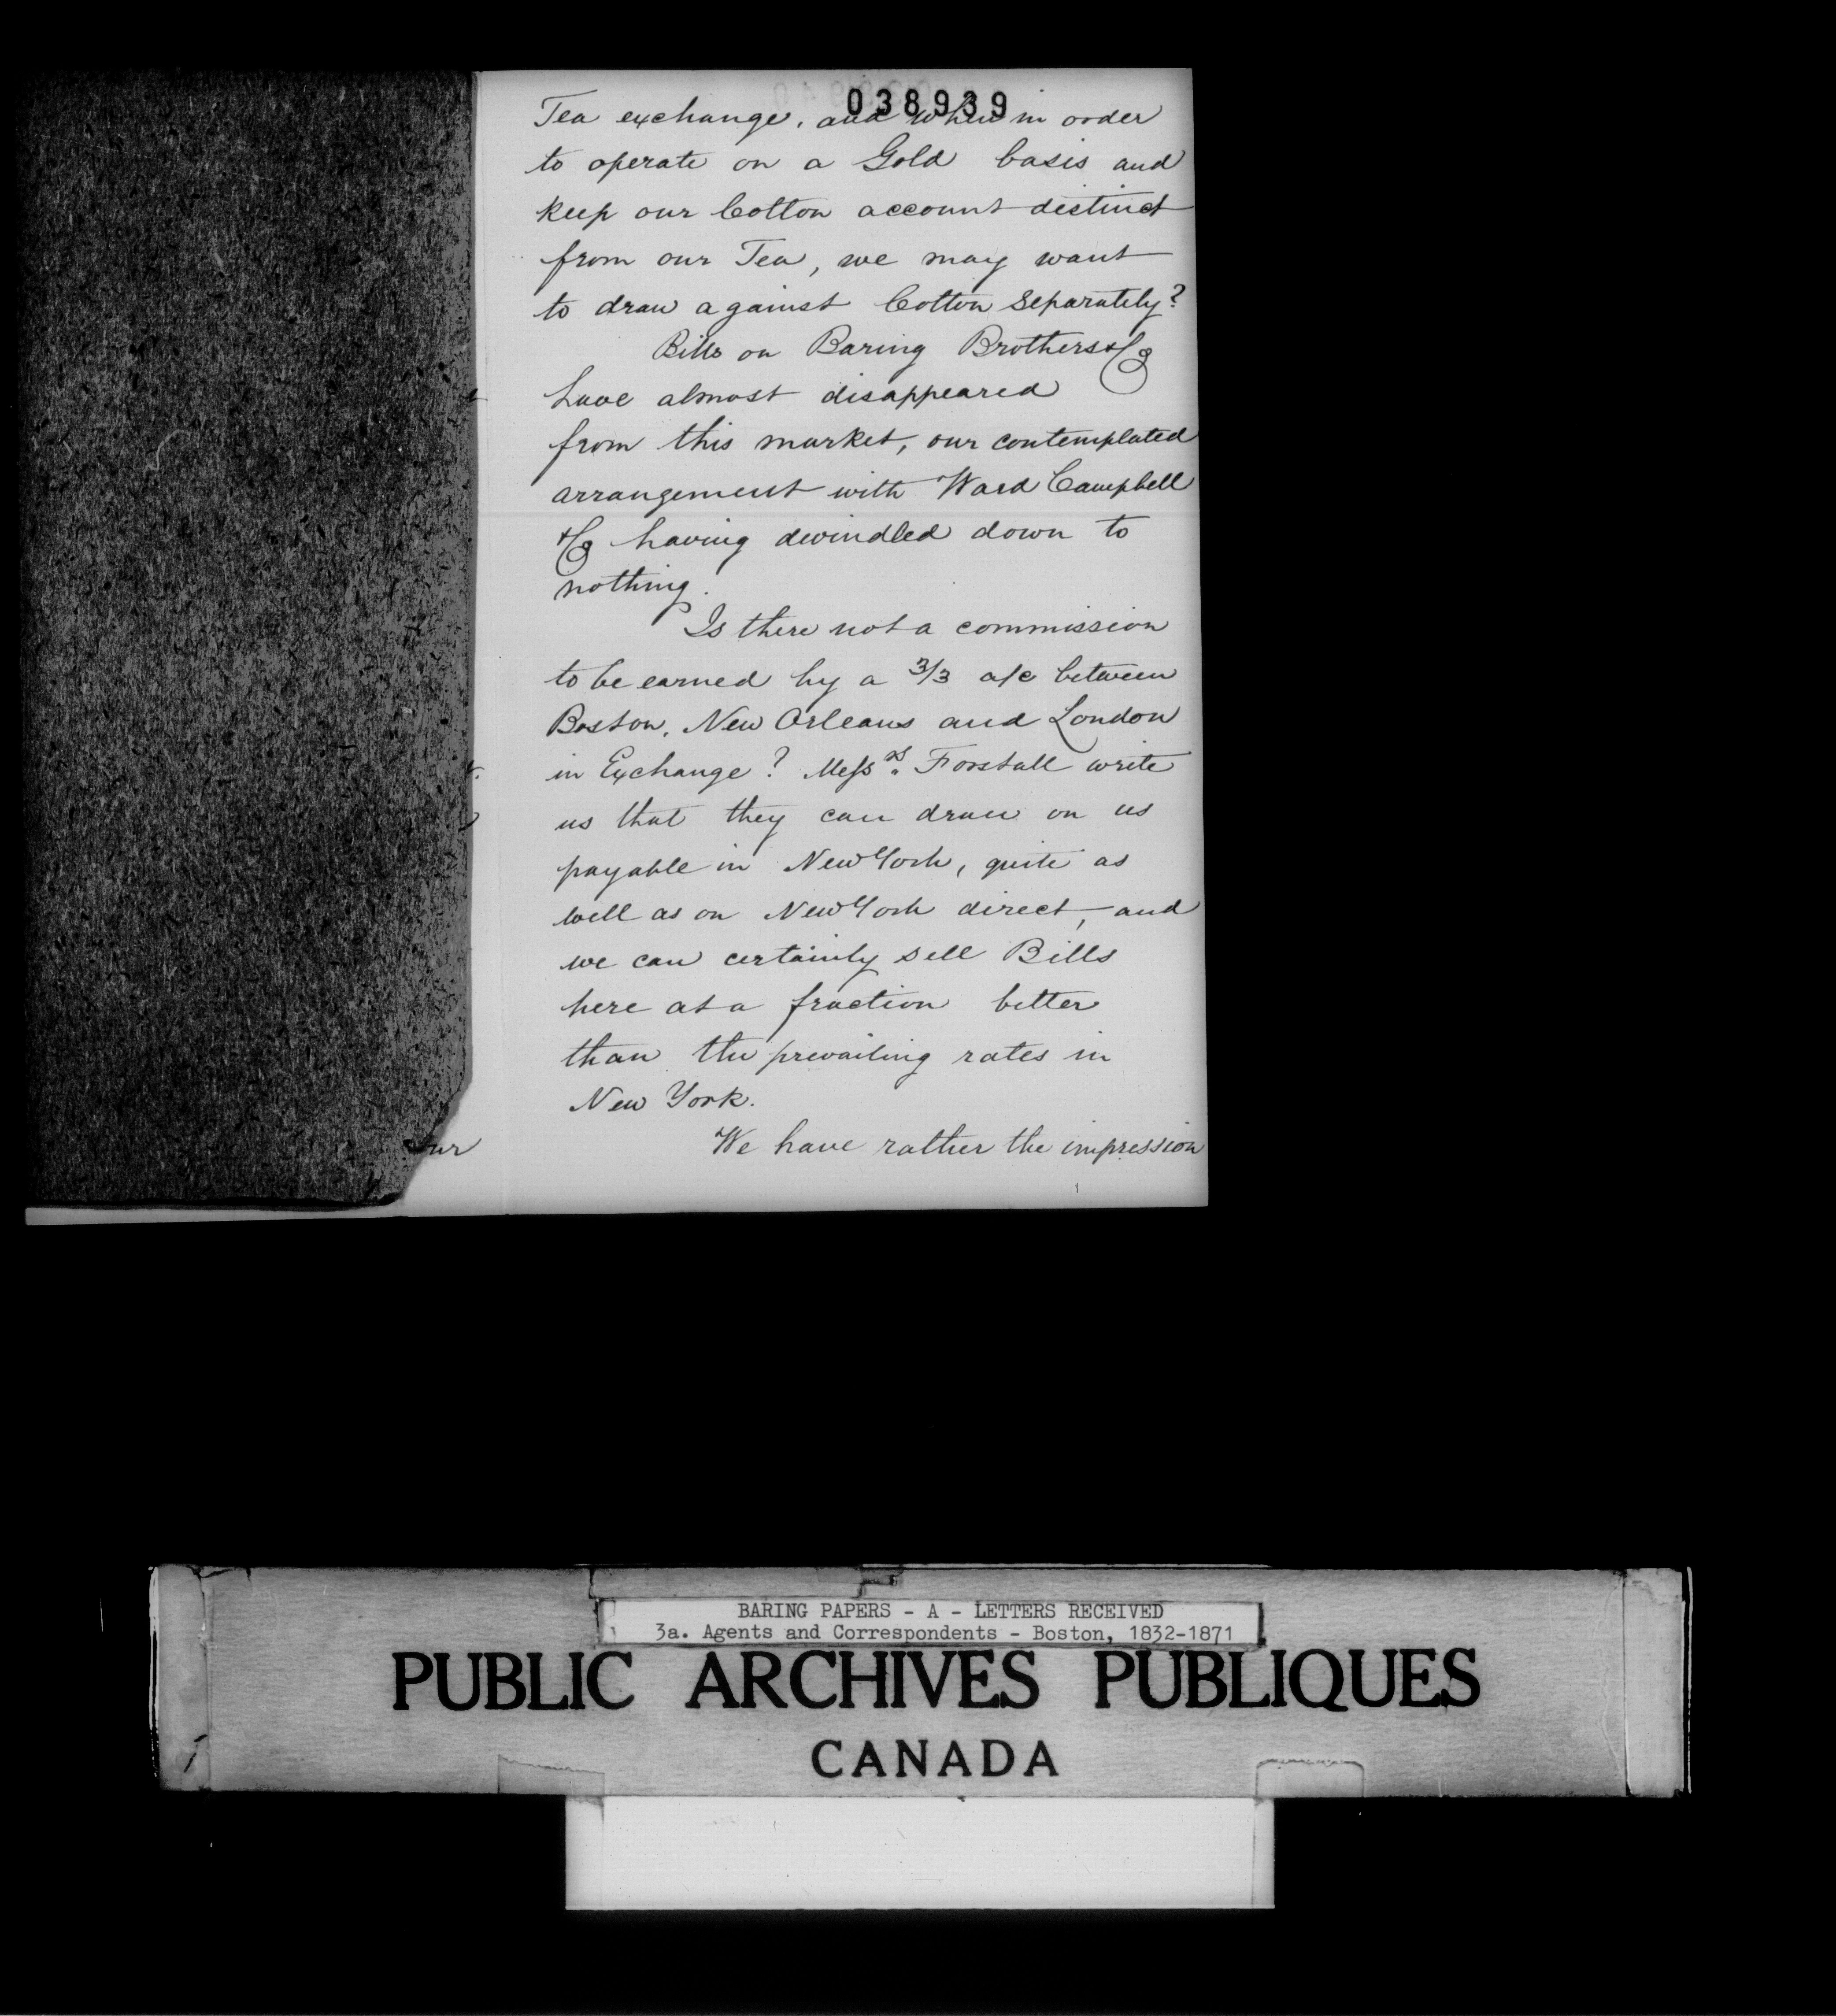 038939
Tea exchange, and when in order
to operate on a Gold basis and
keep our Cotton account distinct
from our Tea, we may want
to draw against Cotton separately?
Bills on Baring Brothers & Co
have almost disappeared
from this market, our contemplated
arrangement with Ward Campbell
& Co having dwindled down to
nothing.
Is there not a commission
to be earned by a 3/3 a/c between
Boston, New Orleans and London
in Exchange? Messrs. Forstall write
us that they can draw on us
payable in New York, quite as
well as on New York direct, and
we can certainly sell Bills
here at a fraction better
than the prevailing rates in
New York.
We have rather the impression
BARING PAPERS - A - LETTERS RECEIVED
3a. Agents and Correspondents - Boston, 1832-1871
PUBLIC ARCHIVES PUBLIQUES
CANADA